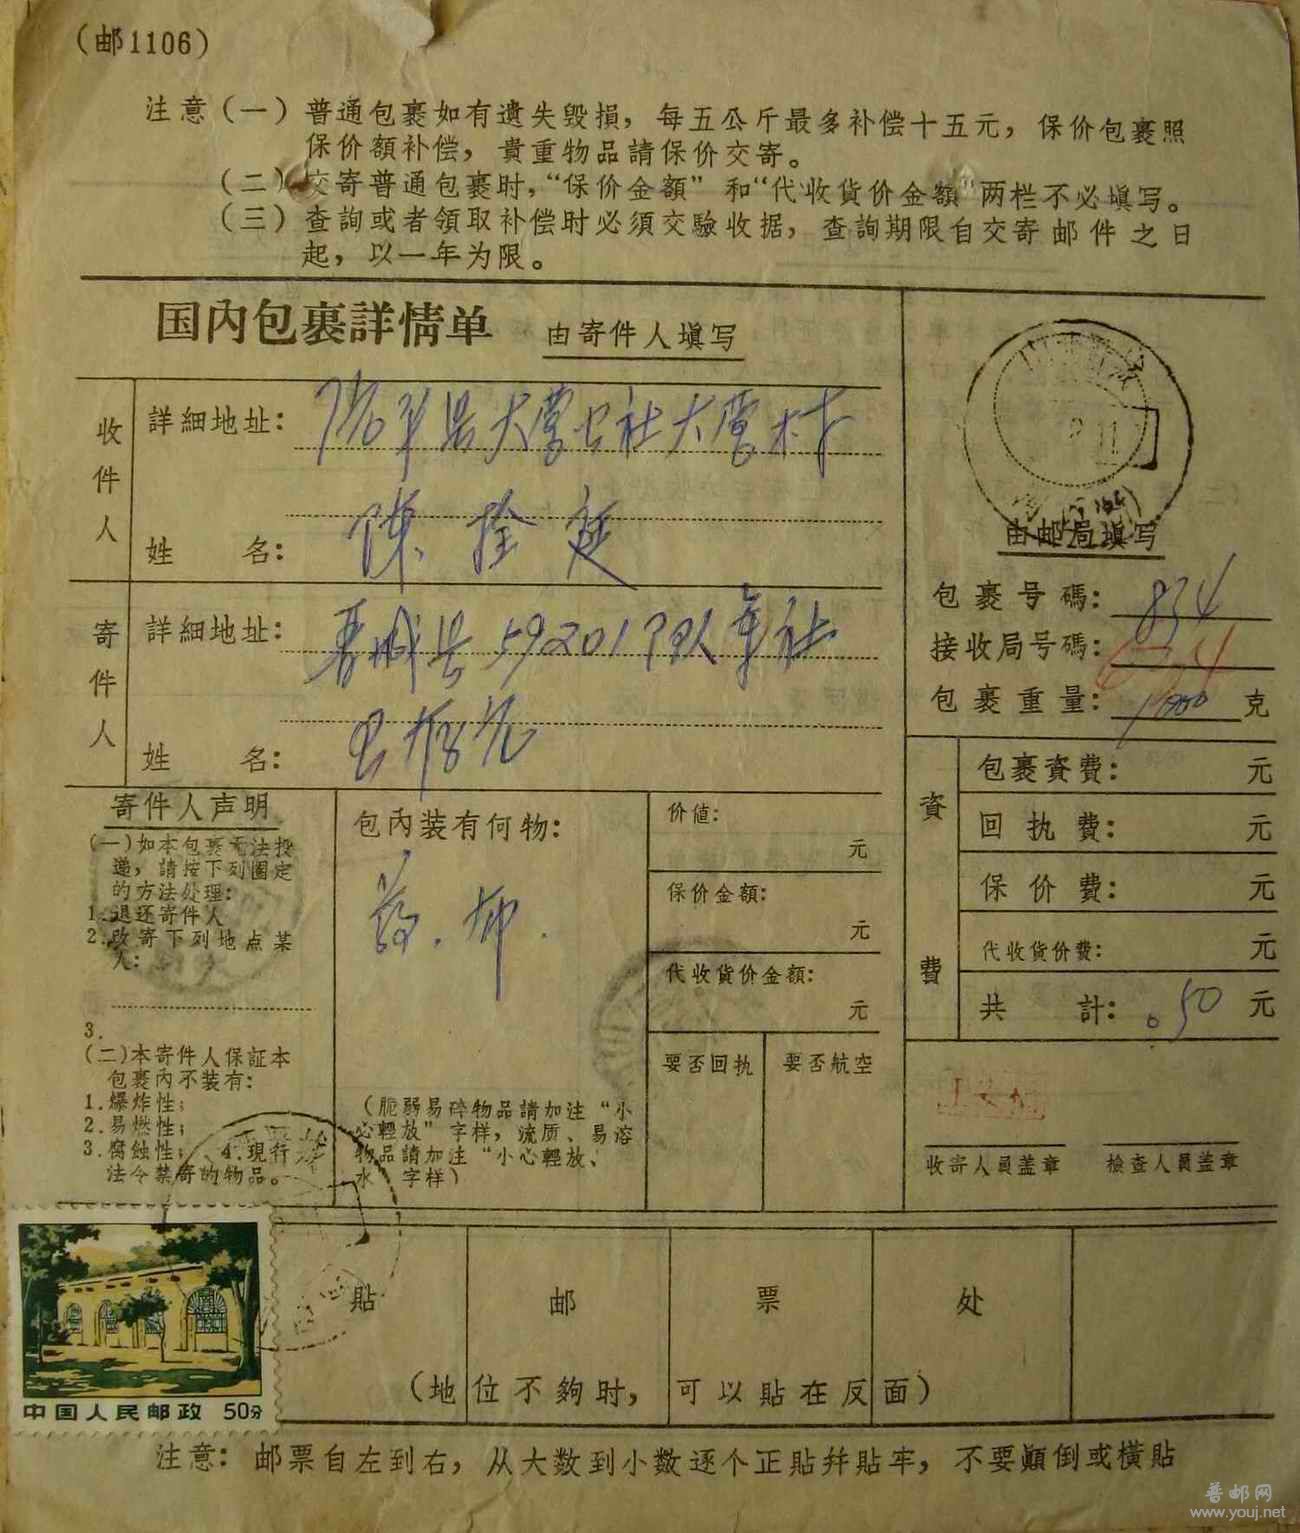 (邮1106)
注意(一)普通包裹如有遺失毀損，每五公斤最多补偿十五元，保价包裹照
保价額补偿，貴重物品請保价交寄。
(二)交寄普通包裹时，“保价金額”和“代收貨价金額”两栏不必填写。
(三)查詢或者領取补偿时必須交驗收据，查詢期限自交寄邮件之日
起，以一年为限。
国內包裹詳情单 由寄件人填写
收件人
詳細地址：
大营公社大营村
姓 名：陳拴延
寄件人
詳細地址：
县59201
姓 名：
由邮局填写
包裹号碼：834
接收局号碼：
包裹重量：1000克
資費
包裹資費： 元
回执費： 元
保价費： 元
代收貨价費： 元
共 計：.50元
收寄人員盖章
檢查人員盖章
寄件人声明
(一)如本包裹无法投
递，請按下列圈定
的方法处理：
1.退还寄件人
2.改寄下列地点某
人：
3.
(二)本寄件人保証本
包裹內不装有：
1.爆炸性；
2.易燃性；
3.腐蝕性； 4.現行
法令禁寄的物品。
包內装有何物：
(脆弱易碎物品請加注“小
心輕放”字样，流质、易溶
物品請加注“小心輕放、
水 字样)
价值：
元
保价金額：
元
代收貨价金額：
元
要否回执
要否航空
貼 邮 票 处
(地位不夠时，可以貼在反面)
中国人民邮政 50分
注意：邮票自左到右，从大数到小数逐个正貼幷貼牢，不要顚倒或橫貼
普邮网
www.youj.net